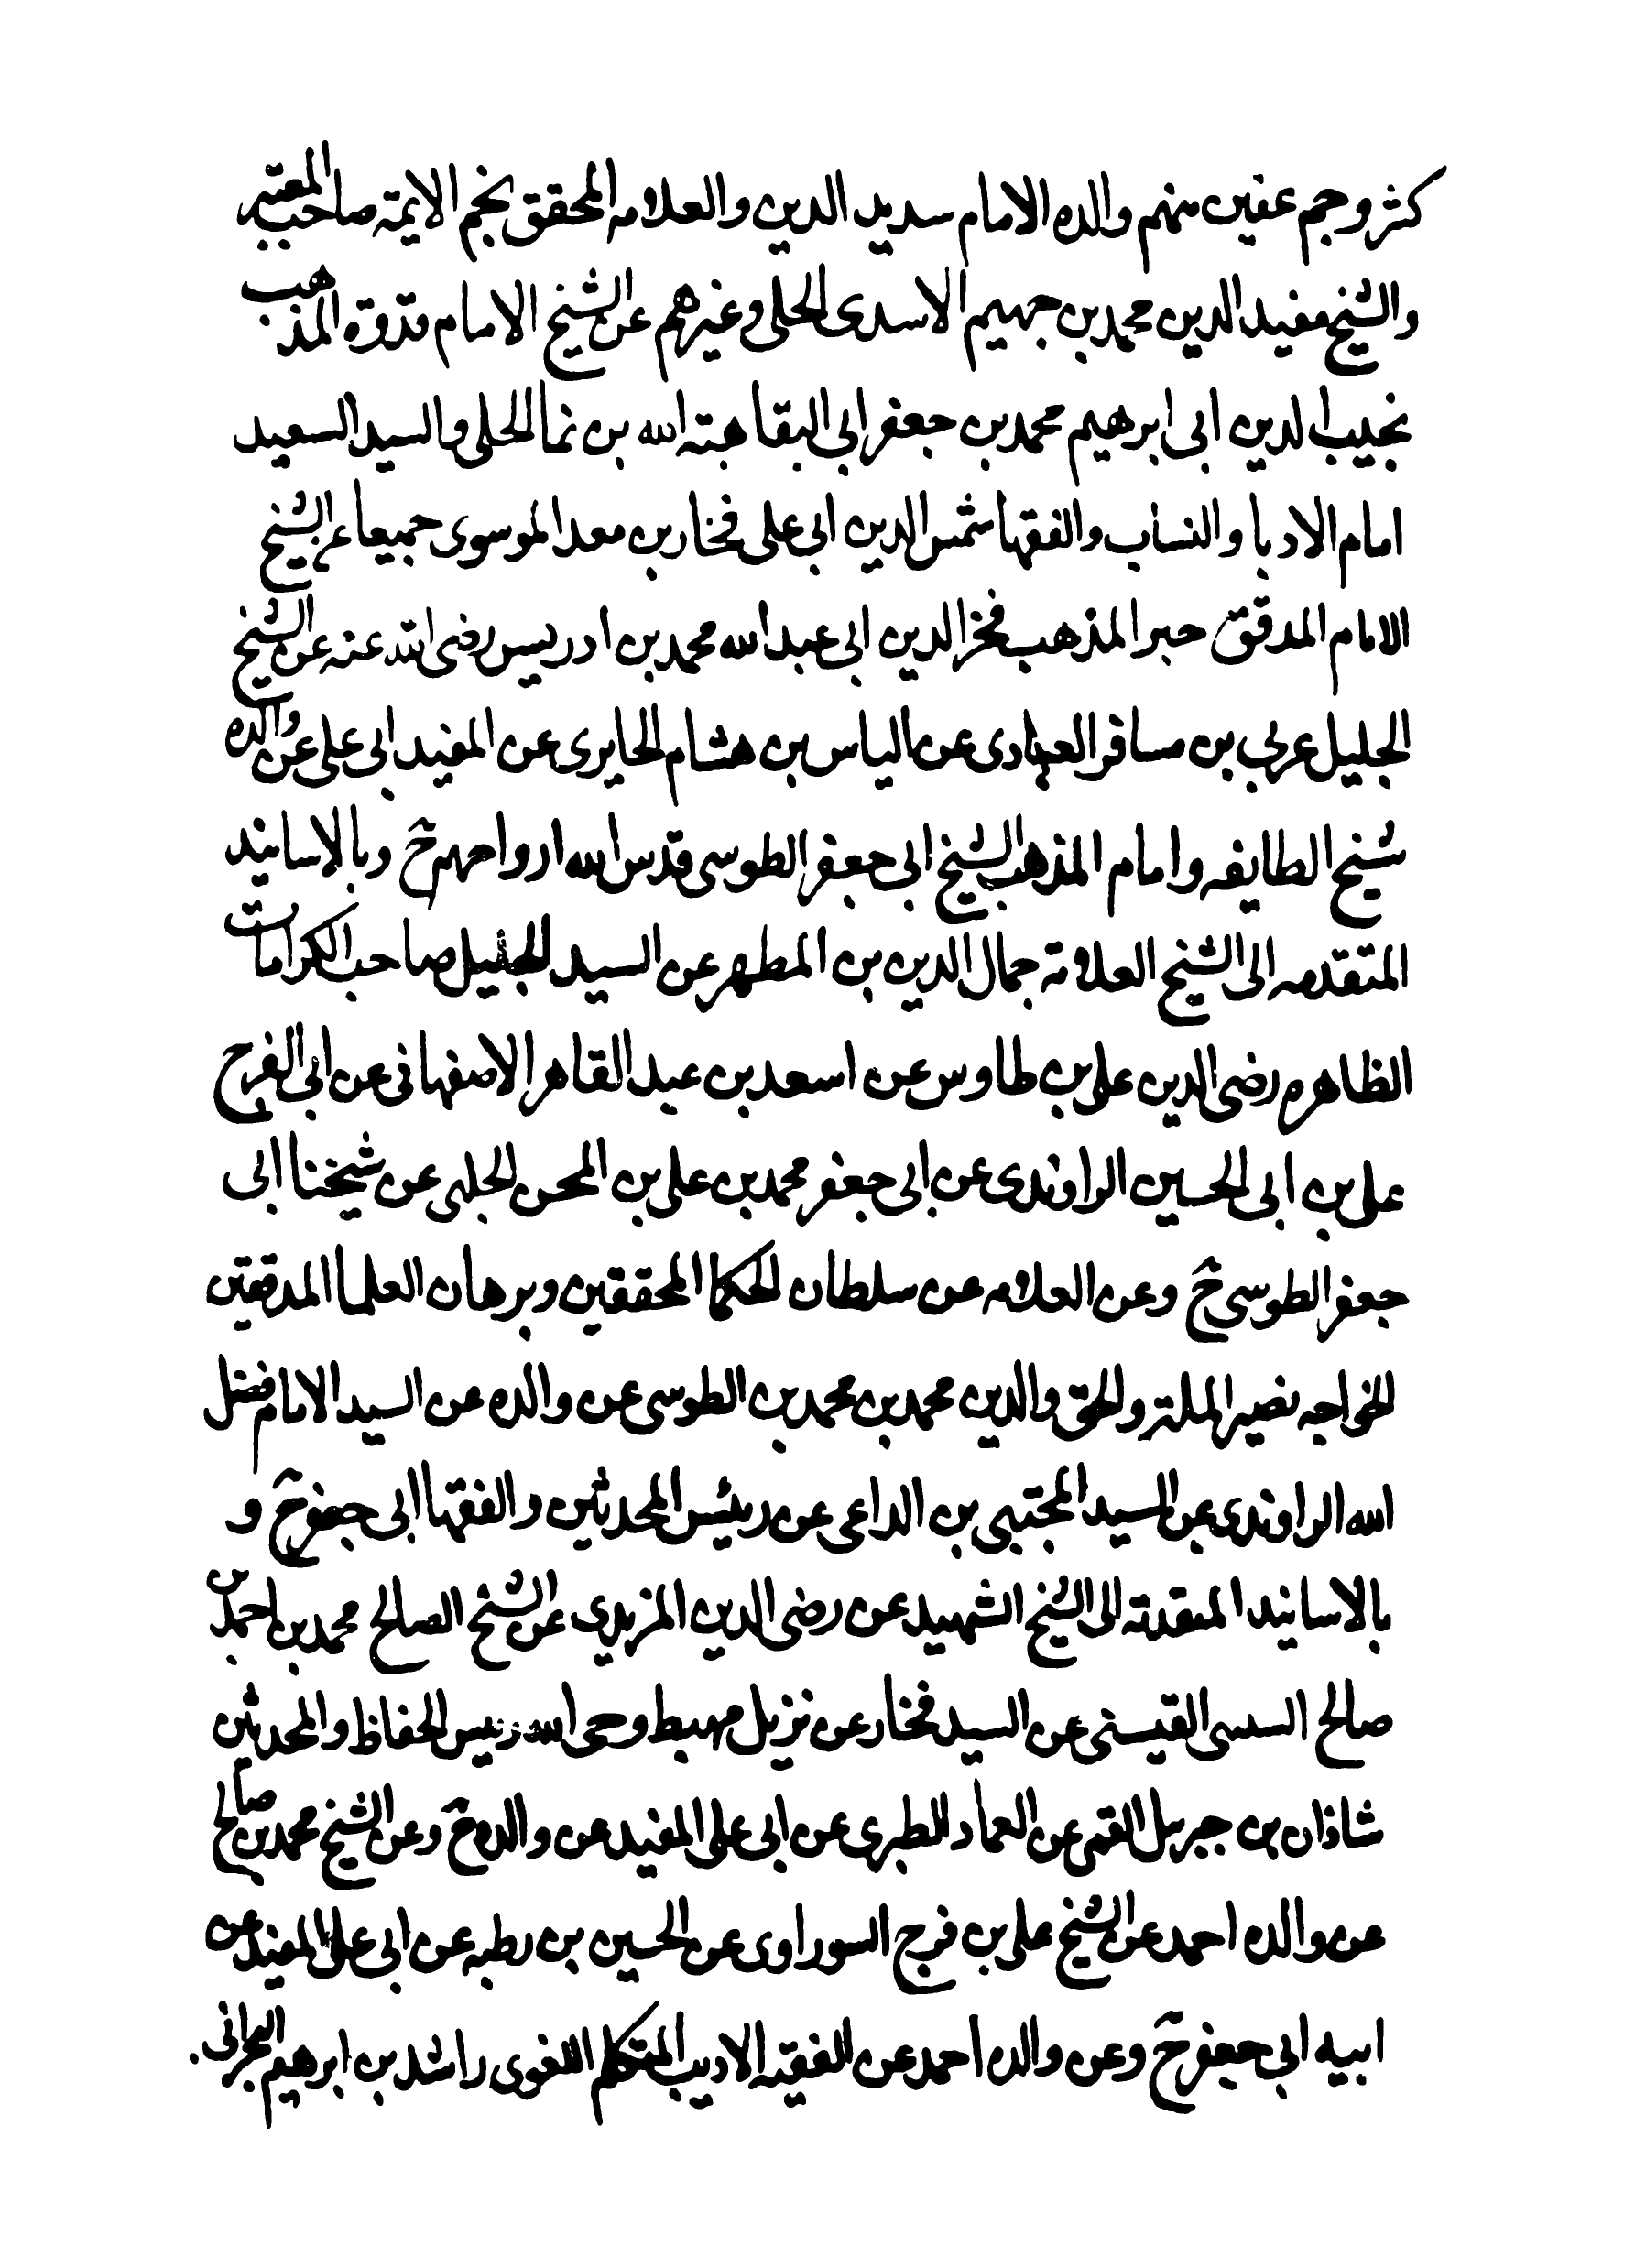 كثر وجم غفير منهم والده الامام سديد الدين والعلامه المحقق نجم الايمة صاحب المعتبر
والشيخ مفيد الدين محمد بن جهيم الاسدى الحلى وغيرهم عن الشيخ الامام قدوة المذهب
نجيب الدين ابى ابرهيم محمد بن جعفر ابي البقا هبة الله بن نما الحلى والسيد السعيد
امام الادبا والنساب والفقها شمس الدين ابي على فخار بن معد الموسوى جميعا عن الشيخ
الامام المدقق حبر المذهب فخر الدين ابي عبد الله محمد بن ادريس رضى الله عنه عن الشيخ
الجليل عربي بن مسافر العبادى عن الياس بن هشام الحايرى عن المفيد ابى على عن والده
شيخ الطايفه وامام المذهب الشيخ ابي جعفر الطوسى قدس الله ارواحهم ح وبالاسانيد
المتقدمه الى الشيخ العلامة جمال الدين بن المطهر عن السيد الجليل صاحب الكرامات
الظاهره رضى الدين على بن طاوس عن اسعد بن عبد القاهر الاصفهانى عن ابي الفرج
على بن ابي الحسين الراوندى عن ابى جعفر محمد بن على بن المحسن الحلبى عن شيخنا ابى
جعفر الطوسى ح وعن العلامه عن سلطان الحكما المحققين وبرهان العلما المدققين
الخواجه نصير الملة والحق والدين محمد بن محمد بن الطوسى عن والده عن السيد الامام فضل
الله الراوندى عن السيد المجتبى بن الداعى عن رئيس المحدثين والفقها ابى جعفر ح و
بالاسانيد المتقدمة الى الشيخ الشهيد عن رضى الدين المزيدي عن الشيخ الصالح محمد بن احمد بن
صالح السسى القسينى عن السيد فخار عن نزيل مهبط وحى الله رئيس الحفاظ والمحدثين
شاذان بن جبريل القمى عن العماد الطبرى عن ابى على المفيد عن والده ح وعن الشيخ محمد بن صالح
عن والده احمد عن الشيخ على بن فرج السوراوى عن الحسين بن رطبه عن ابى على المفيد عن
ابيه ابي جعفر ح وعن والده احمد عن الفقيه الاديب المتكلم اللغوى راشد بن ابرهيم البحرانى.